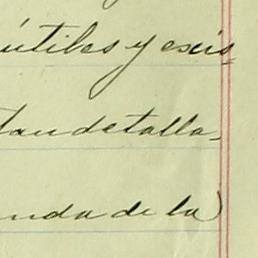 útiles y exis-
tan detalla-
nda de la